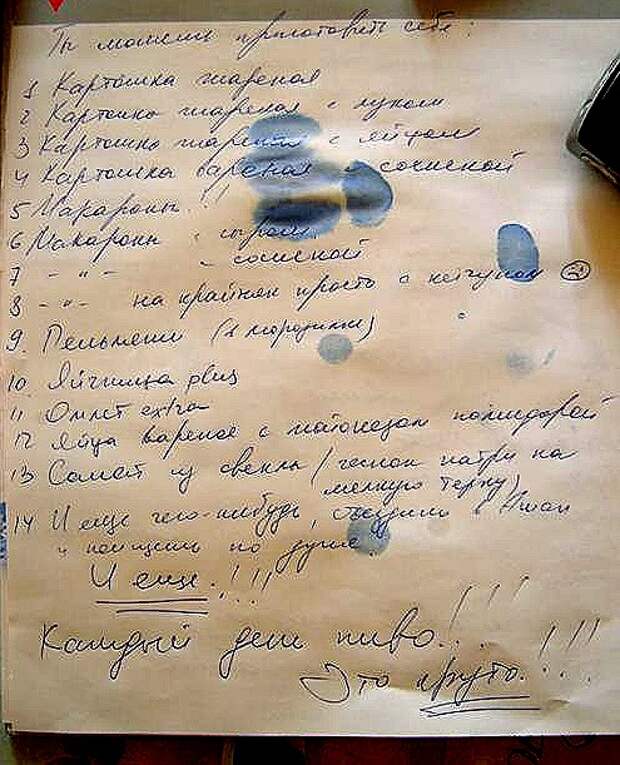 Ты можешь приготовить себе:
1 Картошка жареная
2 Картошка жареная с луком
3 Картошка жареная с яйцом
4 Картошка вареная с сосиской
5 Макароны!!!
6 Макароны с сыром
7 - " - с сосиской
8 - " - на крайняк просто с кетчупом
9. Пельмени (в морозилке)
10. Яичница plus
11 Омлет extra
12 Яйца вареное с майонезом помидорой
13 Салат из свеклы (чеснок натри на
мелкую терку)
14 И еще чего-нибудь, сходишь в Ашан
и поищешь по душе.
И еще!!!
Каждый день пиво...!!!
Это круто...!!!